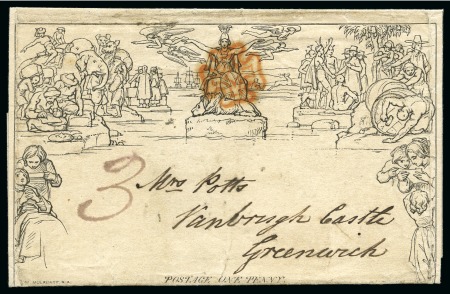 3
Mrs Potts
Vanbrugh Castle
Greenwich
W. MULREADY. R.A.
POSTAGE ONE PENNY.